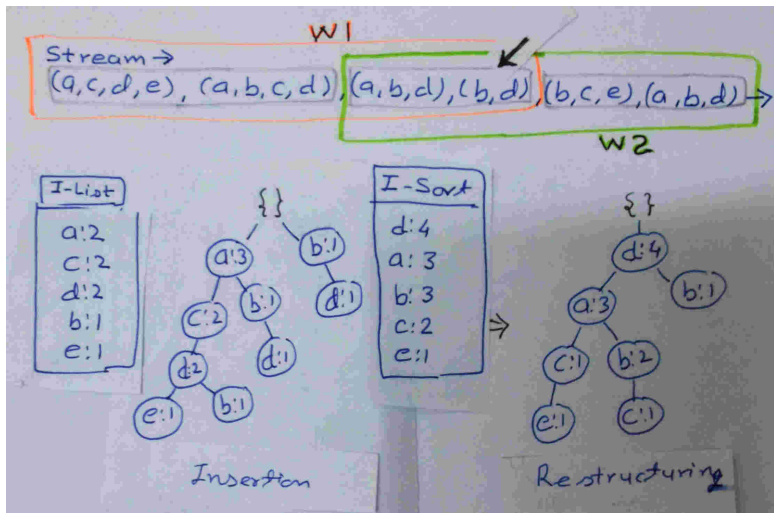 W1
Stream →
(a,c,d,e), (a,b,c,d), (a,b,d), (b,d), (b,c,e), (a,b,d) →
W2
I-List
a:2
c:2
d:2
b:1
e:1
{}
a:3
b:1
c:2
b:1
d:1
d:2
d:1
e:1
b:1
Insertion
I-Sort
d:4
a:3
b:3
c:2
e:1
⇒
{}
d:4
a:3
b:1
c:1
b:2
e:1
c:1
Restructuring